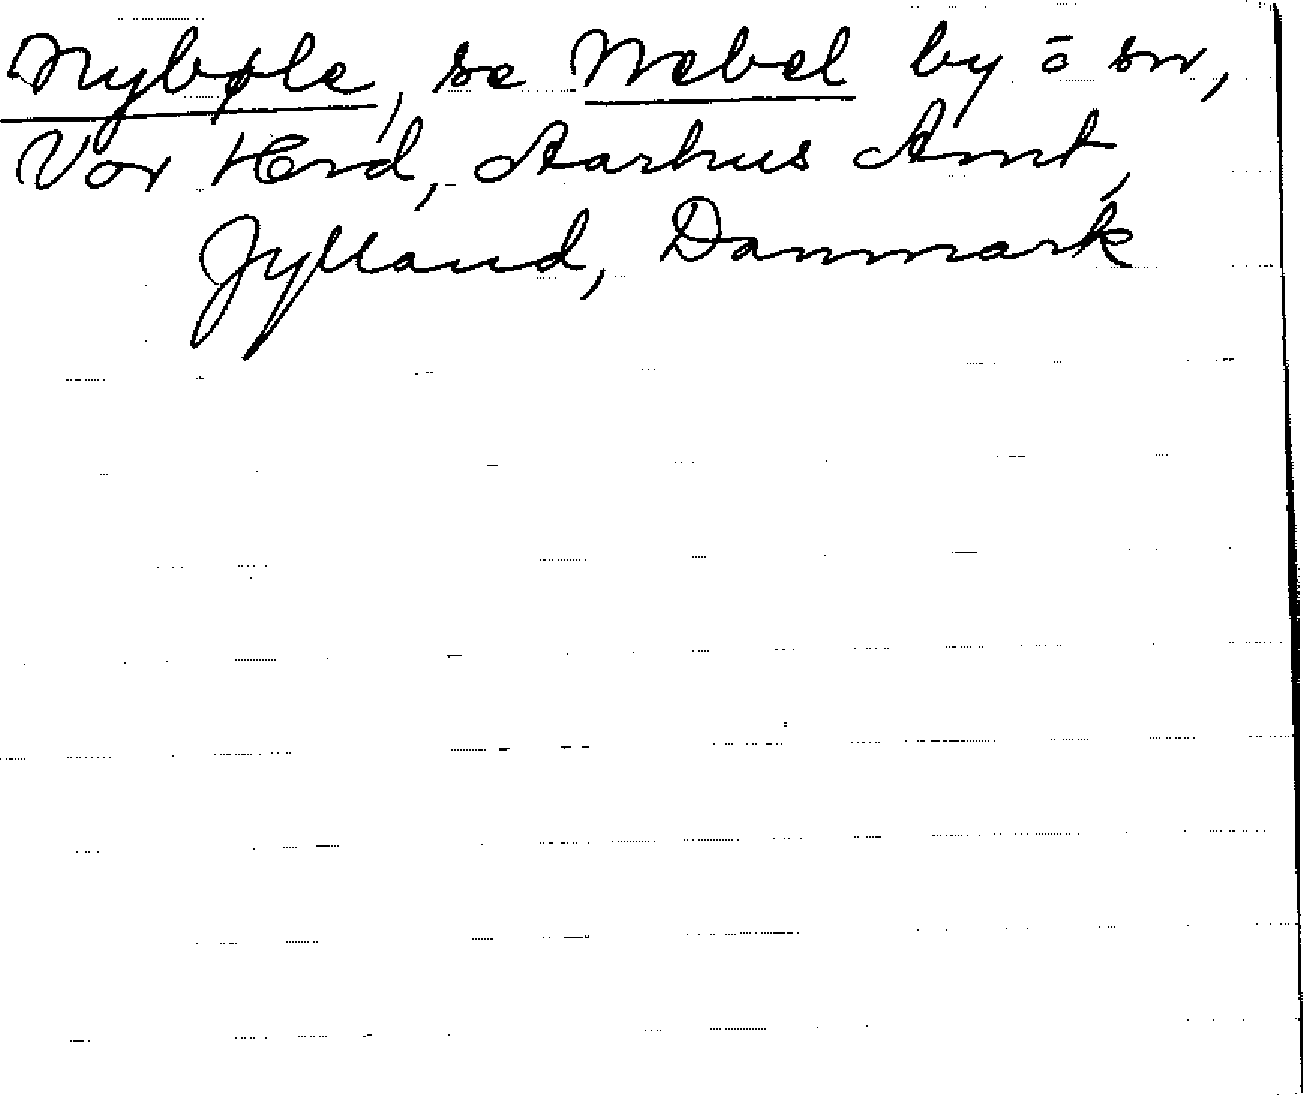 Nybøle, se Nebel by o sn,
Vor Hrd, Aarhus Amt,
Jylland, Danmark